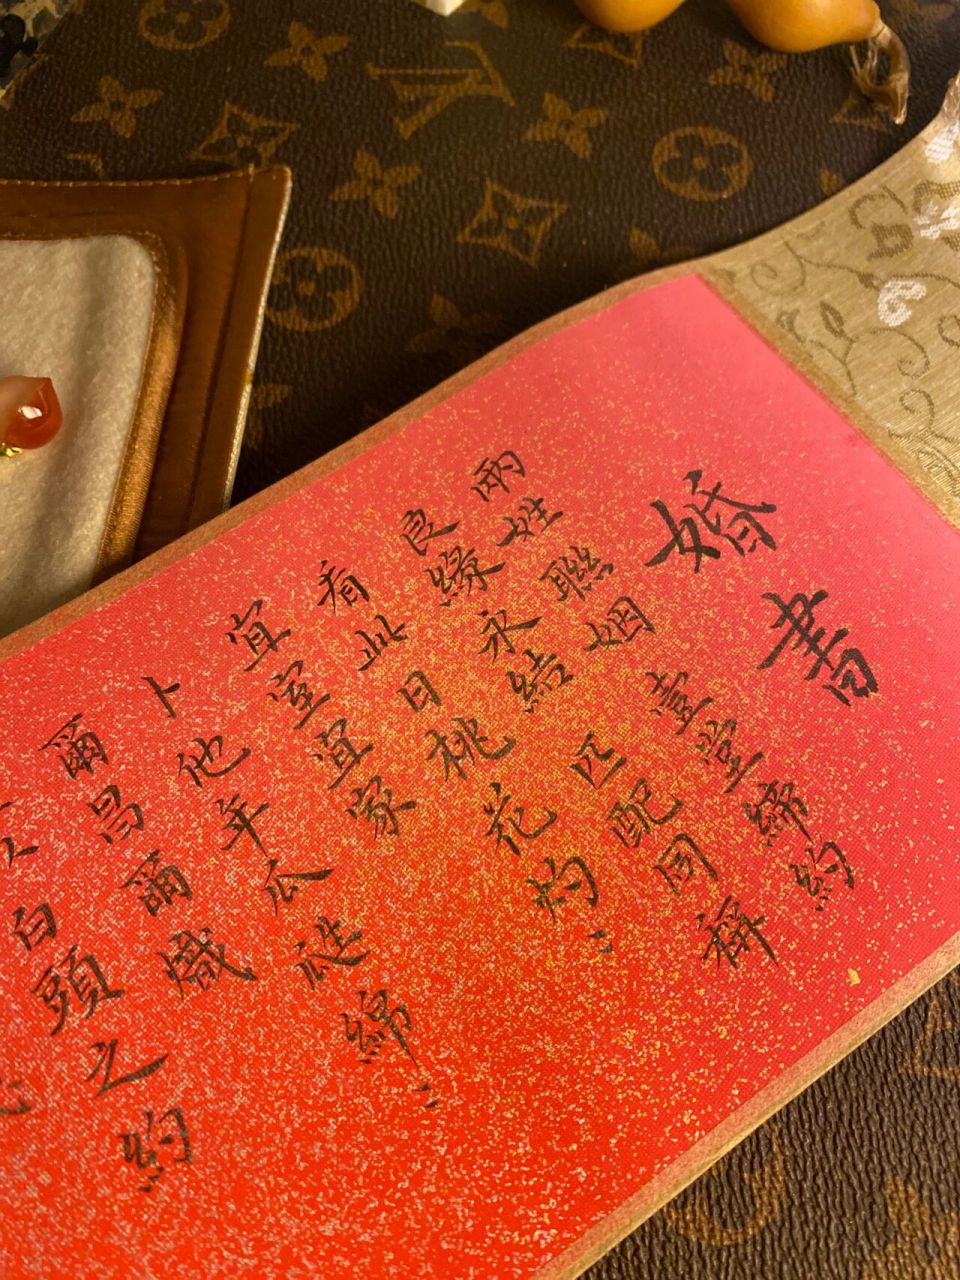 婚書
兩姓聯姻壹堂締約
良緣永結匹配同稱
看此日桃花灼〻
宜室宜家
卜他年瓜瓞綿〻
爾昌爾熾
白頭之約